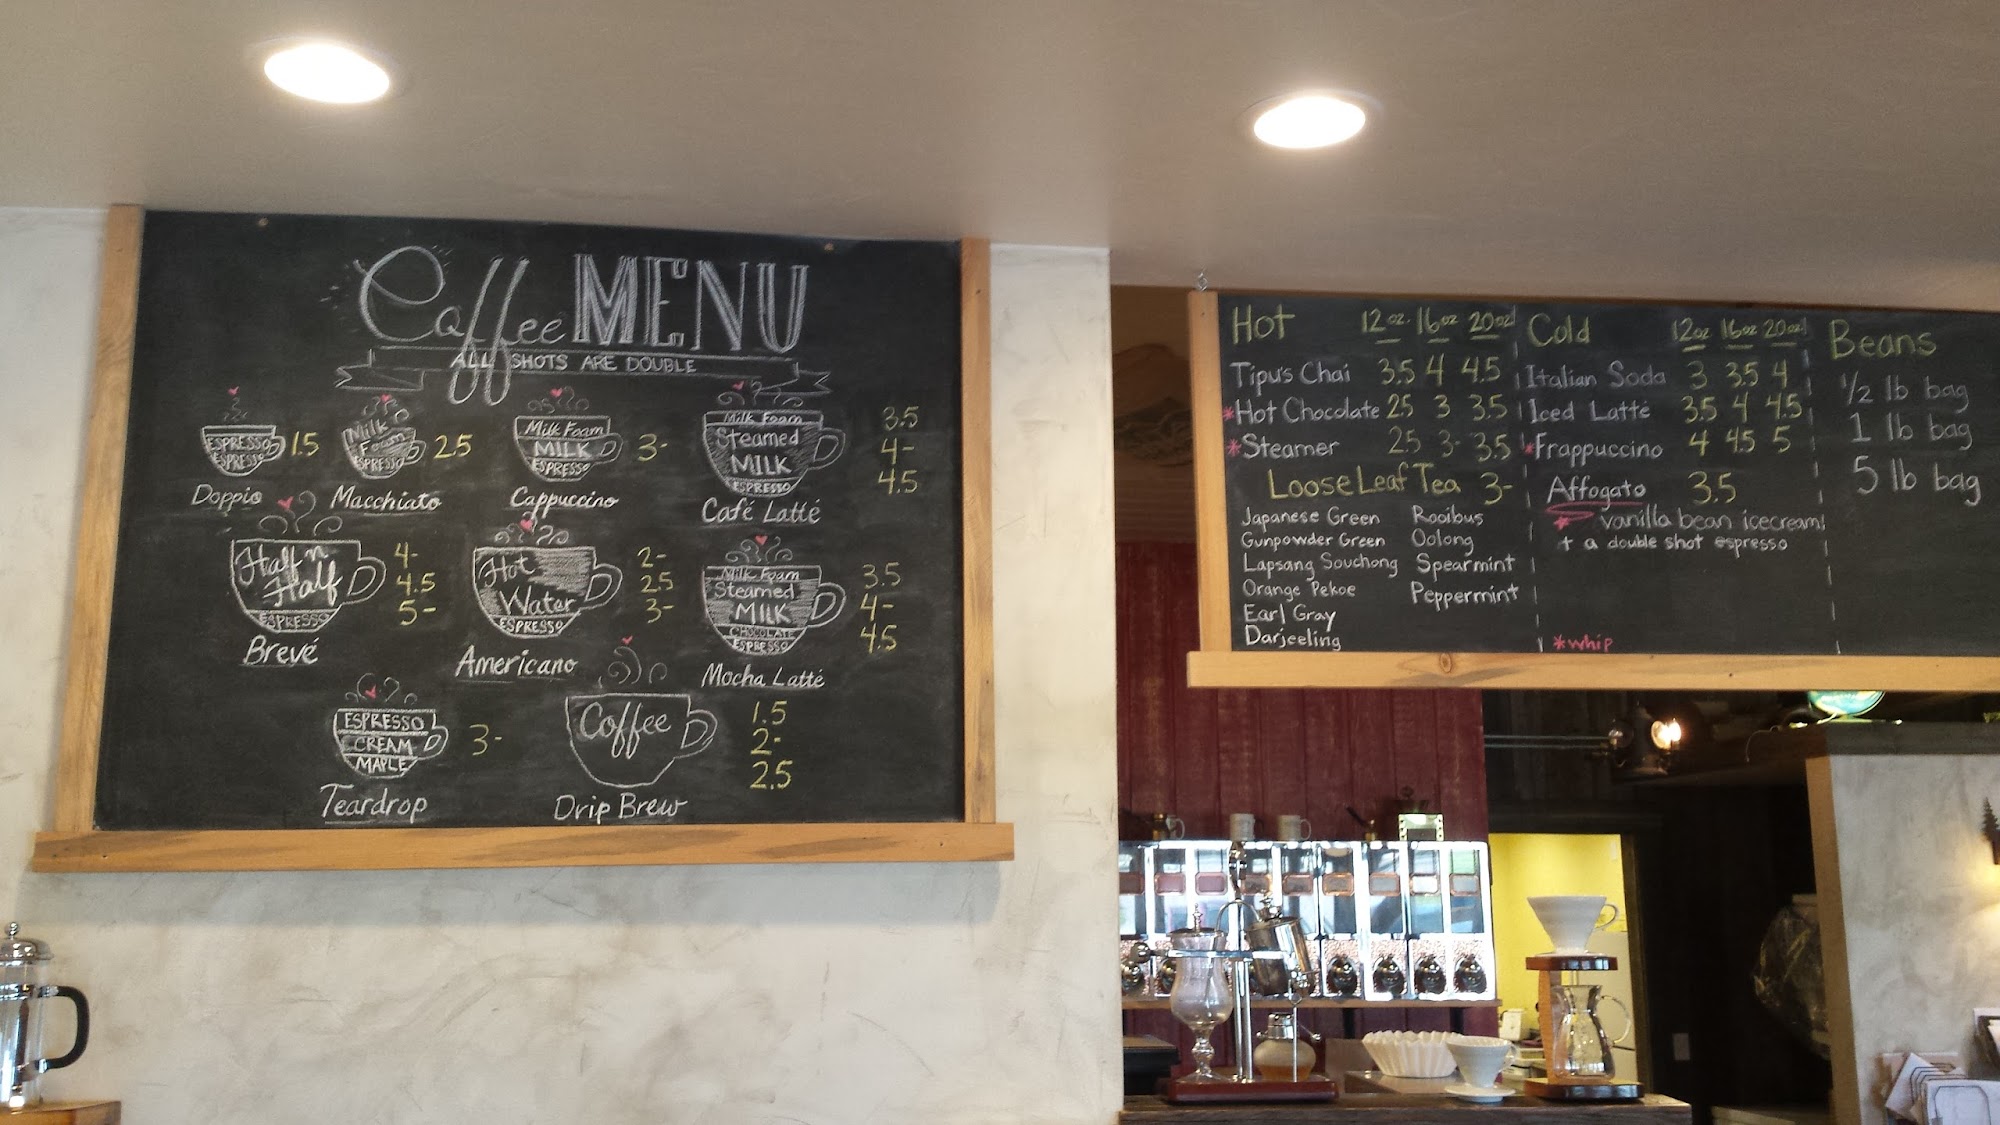 Coffee MENU
ALL SHOTS ARE DOUBLE
ESPRESSO
ESPRESSO
1.5
Doppio
Milk
Foam
ESPRESSO
2.5
Macchiato
Milk Foam
MILK
ESPRESSO
3-
Cappuccino
Milk Foam
Steamed
MILK
ESPRESSO
3.5
4-
4.5
Café Latté
Half n
Half
ESPRESSO
4-
4.5
5-
Brevé
Hot
Water
ESPRESSO
2-
2.5
3-
Americano
Milk Foam
Steamed
MILK
CHOCOLATE
ESPRESSO
3.5
4-
4.5
Mocha Latté
ESPRESSO
CREAM
MAPLE
3-
Teardrop
Coffee
1.5
2-
2.5
Drip Brew
Hot 12oz. 16oz 20oz
Tipu's Chai 3.5 4 4.5
*Hot Chocolate 2.5 3 3.5
*Steamer 2.5 3- 3.5
Loose Leaf Tea 3-
Japanese Green
Gunpowder Green
Lapsang Souchong
Orange Pekoe
Earl Gray
Darjeeling
Rooibus
Oolong
Spearmint
Peppermint
Cold 12oz 16oz 20oz.
Italian Soda 3 3.5 4
Iced Latté 3.5 4 4.5
*Frappuccino 4 4.5 5
Affogato 3.5
* vanilla bean icecream
+ a double shot espresso
*whip
Beans
1/2 lb bag
1 lb bag
5 lb bag